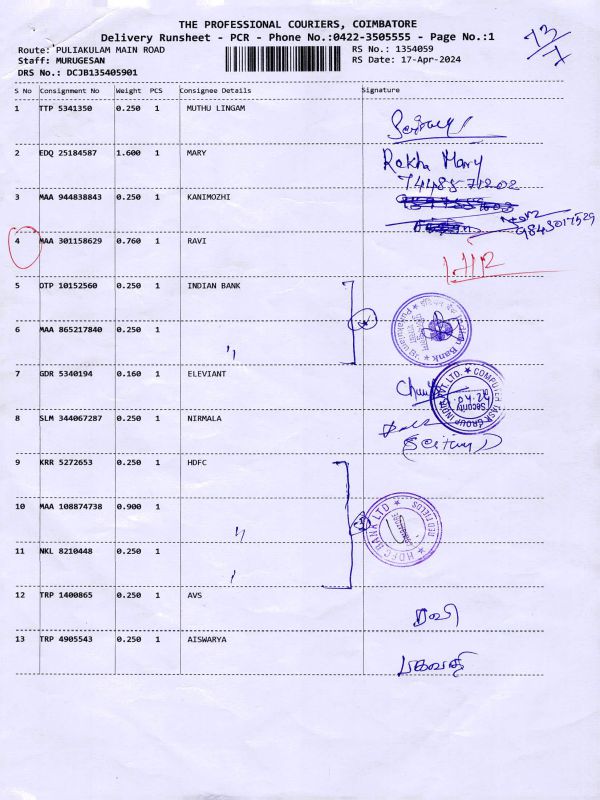 THE PROFESSIONAL COURIERS, COIMBATORE
Delivery Runsheet - PCR - Phone No.:0422-3505555 - Page No.:1
13/1
Route: PULIAKULAM MAIN ROAD
RS No.: 1354059
Staff: MURUGESAN
RS Date: 17-Apr-2024
DRS No.: DCJB135405901
S No Consignment No Weight PCS Consignee Details Signature
1 TTP 5341350 0.250 1 MUTHU LINGAM
2 EDQ 25184587 1.600 1 MARY Rekha Mary
7448571202
3 MAA 944838843 0.250 1 KANIMOZHI
9843017529
4 MAA 301158629 0.760 1 RAVI
5 DTP 10152560 0.250 1 INDIAN BANK
6 MAA 865217840 0.250 1 "
7 GDR 5340194 0.160 1 ELEVIANT
COMPUTER TASK GROUP INDIA PVT LTD. ★
Security
8 SLM 344067287 0.250 1 NIRMALA
(Security)
9 KRR 5272653 0.250 1 HDFC
10 MAA 108874738 0.900 1 "
★ HDFC BANK LTD ★ RED FIELDS
COIMBATORE
11 NKL 8210448 0.250 1 "
12 TRP 1400865 0.250 1 AVS ரவி
13 TRP 4905543 0.250 1 AISWARYA பகவதி